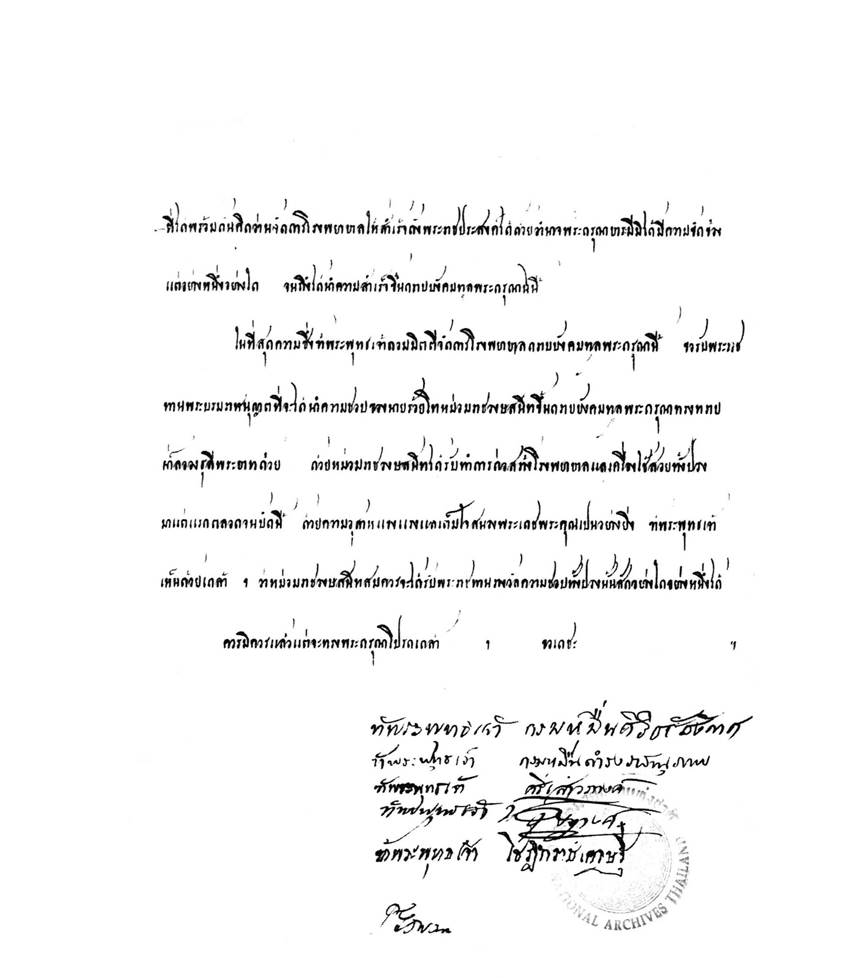 ที่ได้พร้อมกันคิดอ่านจัดการโรงพยาบาลให้สำเร็จดังพระราชประสงค์ได้ด้วยอำนาจพระกรุณาบารมีมิได้มีความขัดข้อง
แต่อย่างหนึ่งอย่างใด จนถึงได้นำความสำเร็จขึ้นกราบบังคมทูลพระกรุณาได้นี้
ในที่สุดความซึ่งข้าพระพุทธเจ้าคอมมิตตีจัดการโรงพยาบาลกราบบังคมทูลพระกรุณานี้ ขอรับพระราช
ทานพระบรมราชานุญาตที่จะได้นำความชอบของนายร้อยโทหม่อมราชวงษสนิทขึ้นกราบบังคมทูลพระกรุณาทรงทราบ
ใต้ฝ่าลอองธุลีพระบาทด้วย ด้วยหม่อมราชวงษสนิทได้รับทำการก่อสร้างโรงพยาบาลแลเครื่องใช้สอยทั้งปวง
มาแต่แรกตลอดจนบัดนี้ ด้วยความอุสาหแขงแรงแลเต็มใจสนองพระเดชพระคุณเปนอย่างยิ่ง ข้าพระพุทธเจ้า
เห็นด้วยเกล้า ฯ ว่าหม่อมราชวงษสนิทสมควรจะได้รับพระราชทานรางวัลความชอบทั้งปวงนั้นสักอย่างใดอย่างหนึ่งได้
ควรมิควรแล้วแต่จะทรงพระกรุณาโปรดเกล้า ฯ ขอเดชะ ฯ
ข้าพระพุทธเจ้า กรมหมื่นศิริธัชสังกาศ
ข้าพระพุทธเจ้า กรมหมื่นดำรงราชานุภาพ
ข้าพระพุทธเจ้า ศรีเสาวภางค์
ข้าพระพุทธเจ้า
ข้าพระพุทธเจ้า โชฎึกราชเศรษฐี
NATIONAL ARCHIVES THAILAND